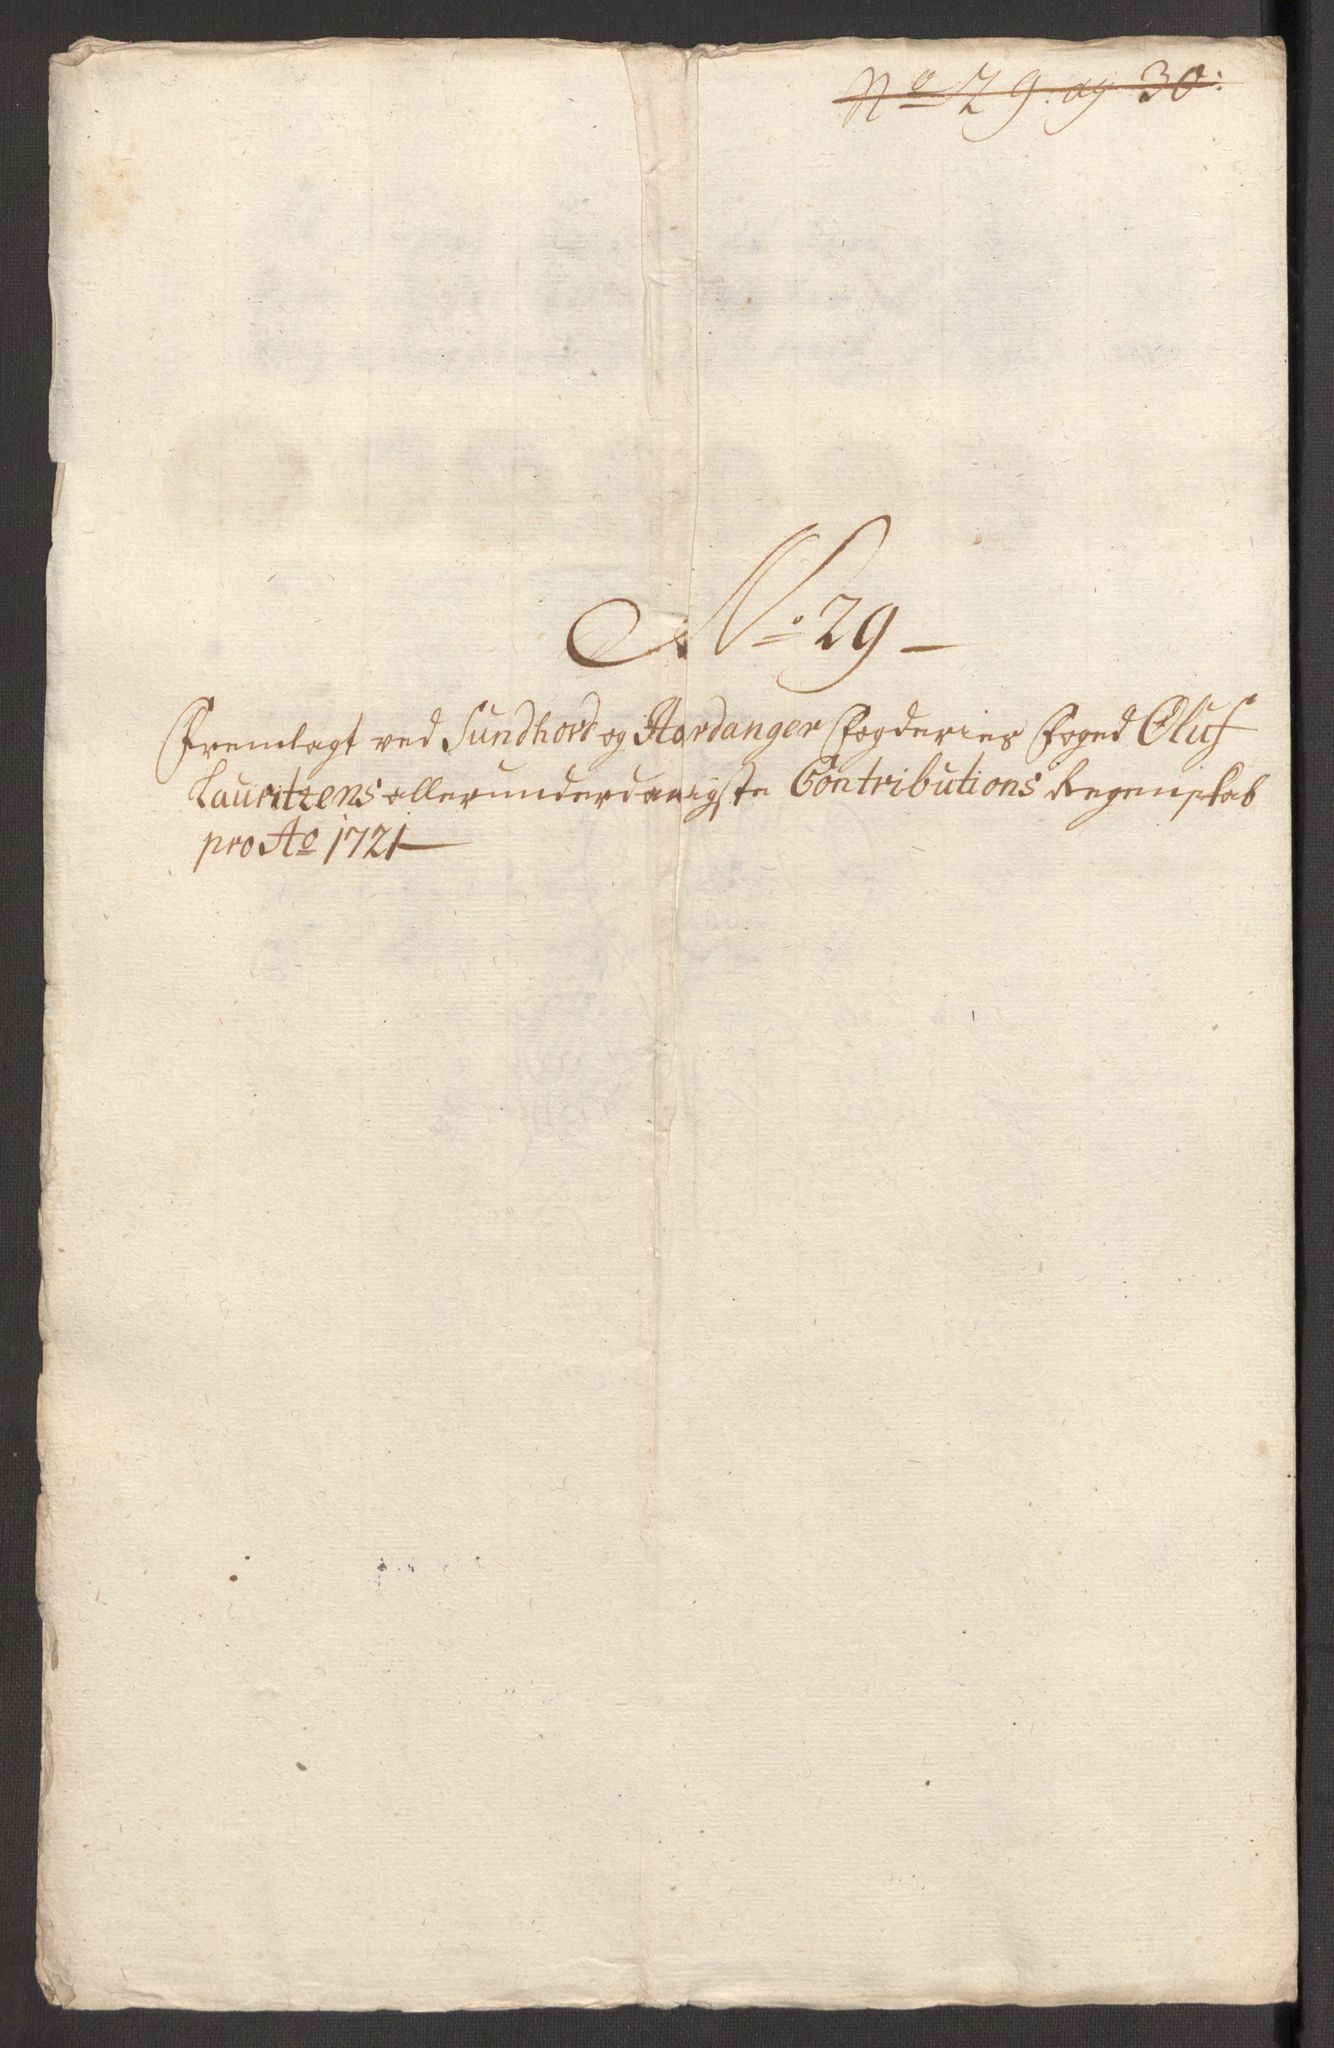 No 29. og 30:
No 29
Fremlagt ved Sundhord og Hardanger Fogderies Foged Oluf
Lauritzens allerunderdanigste Contributions Regenskab
pro Ao 1721